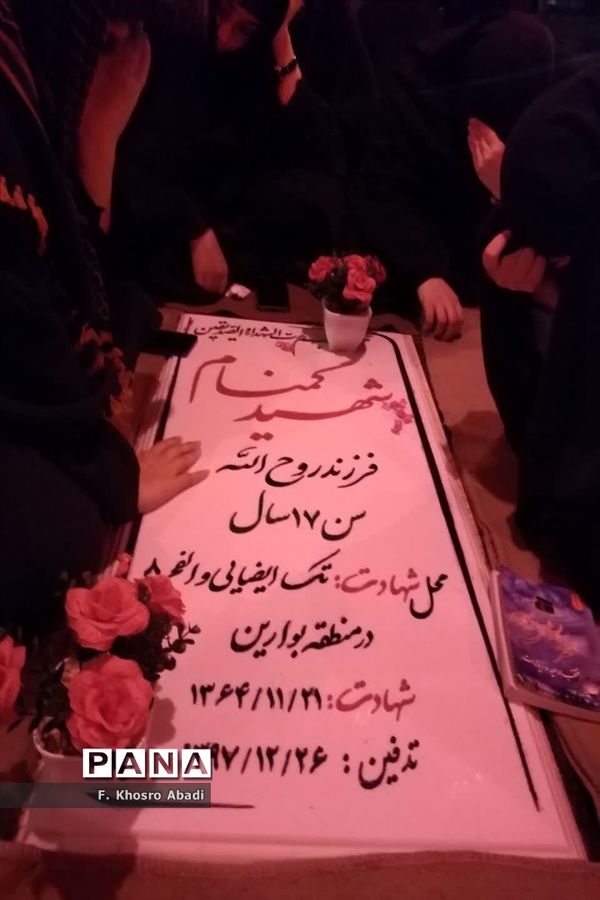 شهید گمنام
فرزند روح الله
سن ۱۷ سال
محل شهادت: تک ایضایی والفجر ۸
در منطقه بوارین
شهادت: ۱۳۶۴/۱۱/۲۱
تدفین: ۱۳۹۷/۱۲/۲۶
PANA
F. Khosro Abadi